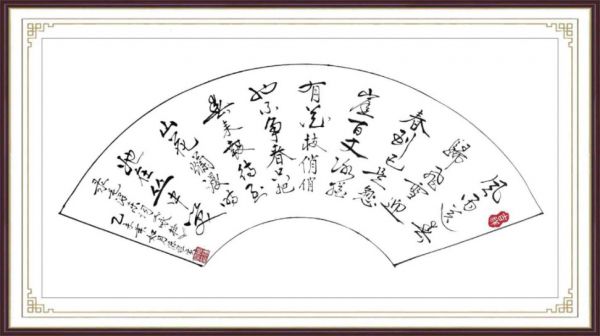 风雨送春
歸飛雪迎
春到已是悬
崖百丈冰猶
有花枝俏俏
也不争春只把
春来报待到
山花爛漫时
她在丛中笑